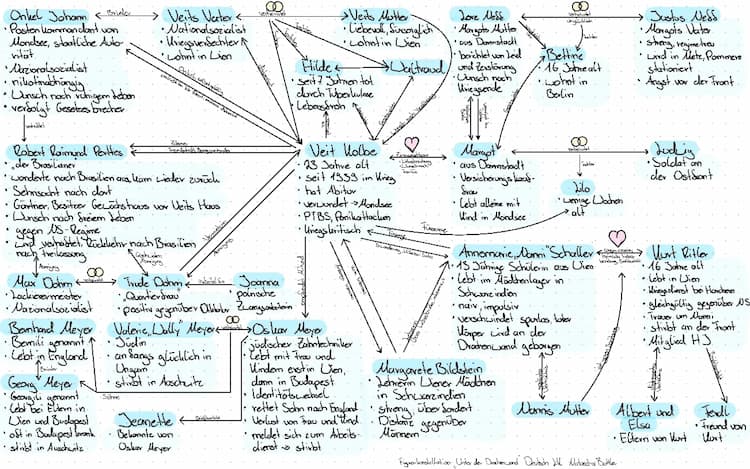 Onkel Johann
• Postenkommandant von
Mondsee, staatliche Auto-
rität
• Nazionalsozialist
• nikotinabhängig
• Wunsch nach ruhigem Leben
• verfolgt Gesetzesbrecher
Brüder
Veits Vater
• Nationalsozialist
• Kriegsverfechter
• wohnt in Wien
verheiratet
Veits Mutter
• liebevoll, fürsorglich
• wohnt in Wien
Hilde
• seit 7 Jahren tot
durch Tuberkulose
• Lebensfroh
Waltraud
Lore Neff
• Margots Mutter
• aus Darmstadt
• berichtet von Leid
und Zerstörung
• Wunsch nach
Kriegsende
verheiratet
unglücklich
Justus Neff
• Margots Vater
• streng, regimetreu
• wird in Metz, Pommern
stationiert
• Angst vor der Front
Bettine
• 16 Jahre alt
• wohnt in
Berlin
Robert Raimund Perttes
• „der Brasilianer“
• wanderte nach Brasilien aus, kam wieder zurück
• Sehnsucht nach dort
• Gärtner, Besitzer Gewächshaus vor Veits Haus
• Wunsch nach freiem Leben
• gegen NS-Regime
• wird verhaftet, Rückkehr nach Brasilien
nach Freilassung
Veit Kolbe
• 23 Jahre alt
• seit 1939 im Krieg
• hat Abitur
• verwundet → Mondsee
• PTBS, Panikattacken
• kriegskritisch
Margot
• aus Darmstadt
• Versicherungskauf-
frau
• lebt alleine mit
Kind in Mondsee
verheiratet
Ludwig
• Soldat an
der Ostfront
Lilo
• wenige Wochen
alt
Max Dohm
• Lackiermeister
• Nationalsozialist
Trude Dohm
• Quartiersfrau
• positiv gegenüber Diktatur
Joanna
• polnische
Zwangsarbeiterin
Annemarie „Nanni“ Schaller
• 13 jährige Schülerin aus Wien
• lebt im Mädchenlager in
Schwarzindien
• naiv, impulsiv
• verschwindet spurlos, toter
Körper wird an der
Drachenwand geborgen
Kurt Ritler
• 16 Jahre alt
• lebt in Wien
• Kriegsdienst bei Hainburg
• gleichgültig gegenüber NS
• Trauer um Nanni
• stirbt an der Front
• Mitglied HJ
Bernhard Meyer
• Bernili genannt
• Lebt in England
Brüder
Georg Meyer
• Georgili genannt
• Lebt bei Eltern in
Wien und Budapest
• oft in Budapest krank
• stirbt in Auschwitz
Valerie „Wally“ Meyer
• Jüdin
• anfangs glücklich in
Ungarn
• stirbt in Auschwitz
Söhne
Oskar Meyer
• jüdischer Zahntechniker
• Lebt mit Frau und
Kindern erst in Wien,
dann in Budapest
• Identitätswechsel
• rettet Sohn nach England
• Verlust von Frau und Kind
• meldet sich zum Arbeits-
dienst → stirbt
Jeanette
• Bekannte von
Oskar Meyer
Margarete Bildstein
• Lehrerin Wiener Mädchen
in Schwarzindien
• streng, überfordert
• Distanz gegenüber
Männern
Nannis Mutter
Albert und
Elsa
• Eltern von Kurt
Ferdl
• Freund von
Kurt